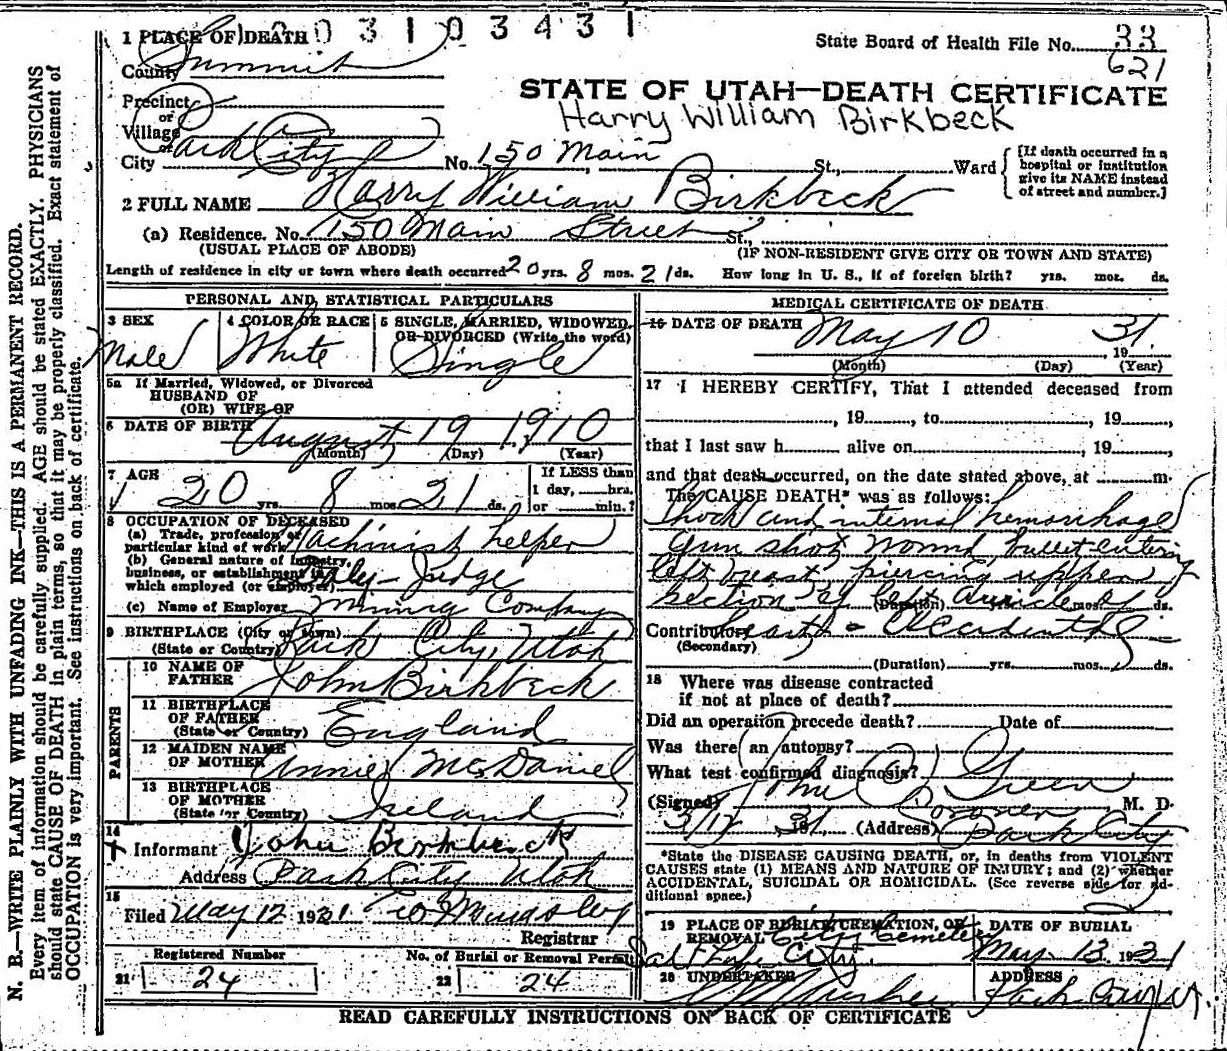 0 0 3 1 0 3 4 3 1
1 PLACE OF DEATH
State Board of Health File No. 33
621
County Summit
STATE OF UTAH—DEATH CERTIFICATE
Harry William Birkbeck
Precinct
or
Village
or
City Park City No. 150 Main St., Ward
[If death occurred in a hospital or institution give its NAME instead of street and number.]
2 FULL NAME Harry William Birkbeck
(a) Residence. No. 150 Main Street St.,
(USUAL PLACE OF ABODE) (IF NON-RESIDENT GIVE CITY OR TOWN AND STATE)
Length of residence in city or town where death occurred 20 yrs. 8 mos. 21 ds. How long in U. S., if of foreign birth? yrs. mos. ds.
PERSONAL AND STATISTICAL PARTICULARS
3 SEX Male
4 COLOR OR RACE White
5 SINGLE, MARRIED, WIDOWED, OR DIVORCED (Write the word) Single
5a If Married, Widowed, or Divorced
HUSBAND OF
(OR) WIFE OF
6 DATE OF BIRTH August 19 1910
(Month) (Day) (Year)
7 AGE 20 yrs. 8 mos. 21 ds.
If LESS than
1 day, hrs.
or min.?
8 OCCUPATION OF DECEASED
(a) Trade, profession or
particular kind of work Machinist helper
(b) General nature of industry,
business, or establishment in
which employed (or employer) Daly-Judge
(c) Name of Employer Mining Company
9 BIRTHPLACE (City or town)
(State or Country) Park City, Utah
PARENTS
10 NAME OF
FATHER John Birkbeck
11 BIRTHPLACE
OF FATHER
(State or Country) England
12 MAIDEN NAME
OF MOTHER Annie McDaniel
13 BIRTHPLACE
OF MOTHER
(State or Country) Ireland
14
Informant John Birkbeck
Address Park City Utah
15
Filed May 12 1931
Registrar
Registered Number
21 24
No. of Burial or Removal Permit
22 24
MEDICAL CERTIFICATE OF DEATH
16 DATE OF DEATH May 10 31
, 19
(Month) (Day) (Year)
17 I HEREBY CERTIFY, That I attended deceased from
, 19 , to , 19 ,
that I last saw h alive on , 19 ,
and that death occurred, on the date stated above, at m.
The CAUSE DEATH* was as follows:
Shock and internal hemorhage
gun shot wound, bullet entering
left breast, piercing upper
section of left auricle of
(Duration) mos. ds.
Contributory heart - Accidental
(Secondary)
(Duration) yrs. mos. ds.
18 Where was disease contracted
if not at place of death?
Did an operation precede death? Date of
Was there an autopsy?
What test confirmed diagnosis?
(Signed) John C Green M. D.
Coroner
5/12 31 19 (Address) Park City
*State the DISEASE CAUSING DEATH, or, in deaths from VIOLENT
CAUSES state (1) MEANS AND NATURE OF INJURY; and (2) whether
ACCIDENTAL, SUICIDAL OR HOMICIDAL. (See reverse side for ad-
ditional space.)
19 PLACE OF BURIAL, CREMATION, OR
REMOVAL City Cemetery
Salt Lake City
DATE OF BURIAL
May 13 1931
20 UNDERTAKER
ADDRESS
Park City Ut.
READ CAREFULLY INSTRUCTIONS ON BACK OF CERTIFICATE
N. B.—WRITE PLAINLY WITH UNFADING INK—THIS IS A PERMANENT RECORD.
Every item of information should be carefully supplied. AGE should be stated EXACTLY. PHYSICIANS
should state CAUSE OF DEATH in plain terms, so that it may be properly classified. Exact statement of
OCCUPATION is very important. See instructions on back of certificate.